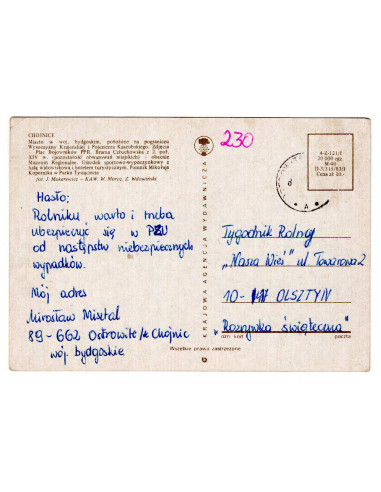 CHOJNICE
Miasto w woj. bydgoskim, położone na pograniczu
Wysoczyzny Krajeńskiej i Pojezierza Kaszubskiego. Zdjęcia
Plac Bojowników PPR. Brama Człuchowska z 2. poł.
XIV w. (pozostałość obwarowań miejskich) – obecnie
Muzeum Regionalne. Ośrodek sportowo-wypoczynkowy z
halą widowiskową i hotelem turystycznym. Pomnik Mikołaja
Kopernika w Parku Tysiąclecia
fot. J. Makarewicz – KAW, W. Moroz, Z. Wdowiński
230
4-2-121/I
20 000 egz.
Cena zł 10.-
A
KRAJOWA AGENCJA WYDAWNICZA
Hasło:
Rolniku, warto i trzeba
ubezpieczyć się w PZU
od następstw niebezpiecznych
wypadków.
Mój adres
Mirosław Misztal
89-662 Ostrowite /k Chojnic
woj. bydgoskie
Tygodnik Rolny
„Nasza Wieś" ul Towarowa 2
10- OLSZTYN
„Rozrywka świąteczna"
ozn. kod
poczta
Wszelkie prawa zastrzeżone